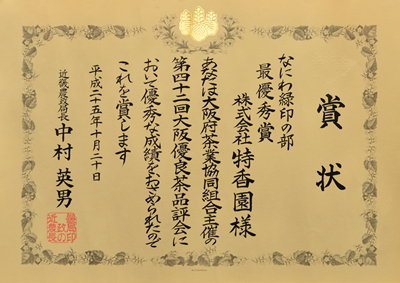 賞状
なにわ緑印の部
最優秀賞
株式会社 特香園 様
あなたは大阪府茶業協同組合主催の
第四十二回大阪優良茶品評会に
おいて優秀な成績をおさめられたので
これを賞します
平成二十五年十月二十日
近畿農政局長 中村英男